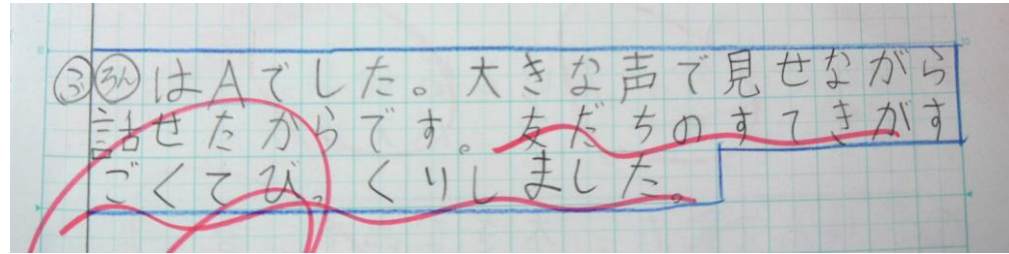 ふろんはAでした。大きな声で見せながら
話せたからです。友だちのすてきがす
ごくてびっくりしました。